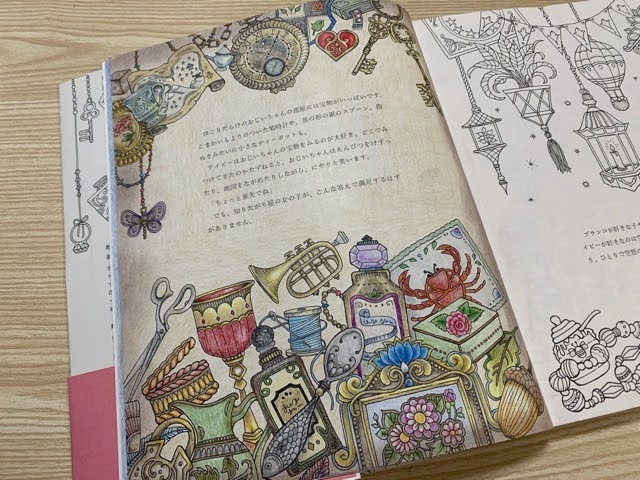 ほこりだらけのおじいちゃんの部屋には宝物がいっぱいです。
こまかいもようのついた懐中時計や、魚の形の銀のスプーン、指
ぬきみたいに小さなティーポットも。
アイビーはおじいちゃんの宝物をみるのが大好き。どこでみ
つけてきたのかたずねると、おじいちゃんはえんぴつをけずっ
たり、地図をながめたりしながら、にやりと笑います。
「ちょっと旅先でね」
でも、知りたがり屋の女の子が、こんな答えで満足するはず
がありません。
ブランコが好きな子や
イビーが好きなのは
り、ひとりで空想の